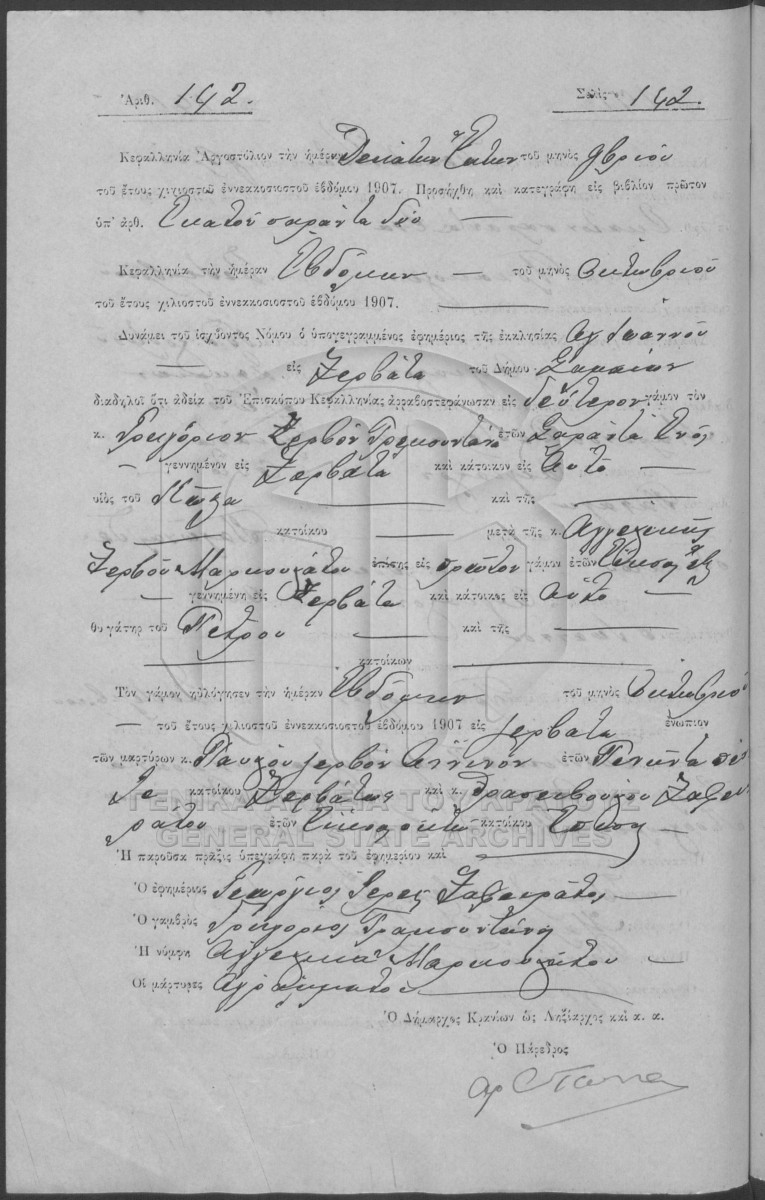 Ἀριθ. 142. Σελὶς 142.
Κεφαλληνία Ἀργοστόλιον τὴν ἡμέραν Δεκάτην Ἕκτην τοῦ μηνὸς 9βρίου
τοῦ ἔτους χιλιοστοῦ ἐννεακοσιοστοῦ ἑβδόμου 1907. Προσήχθη καὶ κατεγράφη εἰς βιβλίον πρῶτον
ὑπ' ἀρθ. Ἑκατὸν σαράντα δύο
Κεφαλληνία τὴν ἡμέραν Ἑβδόμην τοῦ μηνὸς Ὀκτωβρίου
τοῦ ἔτους χιλιοστοῦ ἐννεακοσιοστοῦ ἑβδόμου 1907.
Δυνάμει τοῦ ἰσχύοντος Νόμου ὁ ὑπογεγραμμένος ἐφημέριος τῆς ἐκκλησίας Ἁγ Ἰωάννου
εἰς Ζερβάτα τοῦ Δήμου Σαμαίων
διαδηλοῖ ὅτι ἀδείᾳ τοῦ Ἐπισκόπου Κεφαλληνίας ἀρραβοστεφάνωσαν εἰς δεύτερον γάμον τὸν
κ. Γρηγόριον Ζερβὸν ἐτῶν Σαράντα ἑνός
γεννημένον εἰς Ζερβάτα καὶ κάτοικον εἰς Αὐτό
υἱὸς τοῦ καὶ τῆς
κατοίκου μετὰ τῆς κ. Ἀγγελικῆς
Ζερβοῦ Μαρκουλάτου ἐπίσης εἰς πρῶτον γάμον ἐτῶν
γεννημένη εἰς Ζερβάτα καὶ κάτοικος εἰς Αὐτό
θυγάτηρ τοῦ Πέτρου καὶ τῆς
κατοίκων
Τὸν γάμον ηὐλόγησεν τὴν ἡμέραν Ἑβδόμην τοῦ μηνὸς Ὀκτωβρίου
τοῦ ἔτους χιλιοστοῦ ἐννεακοσιοστοῦ ἑβδόμου 1907 εἰς Ζερβάτα ἐνώπιον
τῶν μαρτύρων κ. Παύλου Ζερβοῦ ἐτῶν Πενῆντα πέν
τε κατοίκου Ζερβάτων καὶ κ. Θρασυβούλου
ἐτῶν Εἴκοσι ὀκτώ κατοίκου Ἐπίσης
ΓΕΝΙΚΑ ΑΡΧΕΙΑ ΤΟΥ ΚΡΑΤΟΥΣ
GENERAL STATE ARCHIVES
Ἡ παροῦσα πρᾶξις ὑπεγράφη παρὰ τοῦ ἐφημερίου καὶ
Ὁ ἐφημέριος Γεώργιος Ἱερεὺς
Ὁ γαμβρὸς Γρηγόριος
Ἡ νύμφη Ἀγγελικὴ Μαρκουλάτου
Οἱ μάρτυρες Ἀγράμματοι
Ὁ Δήμαρχος Κρανίων ὡς Ληξίαρχος καὶ κ. α.
Ὁ Πάρεδρος